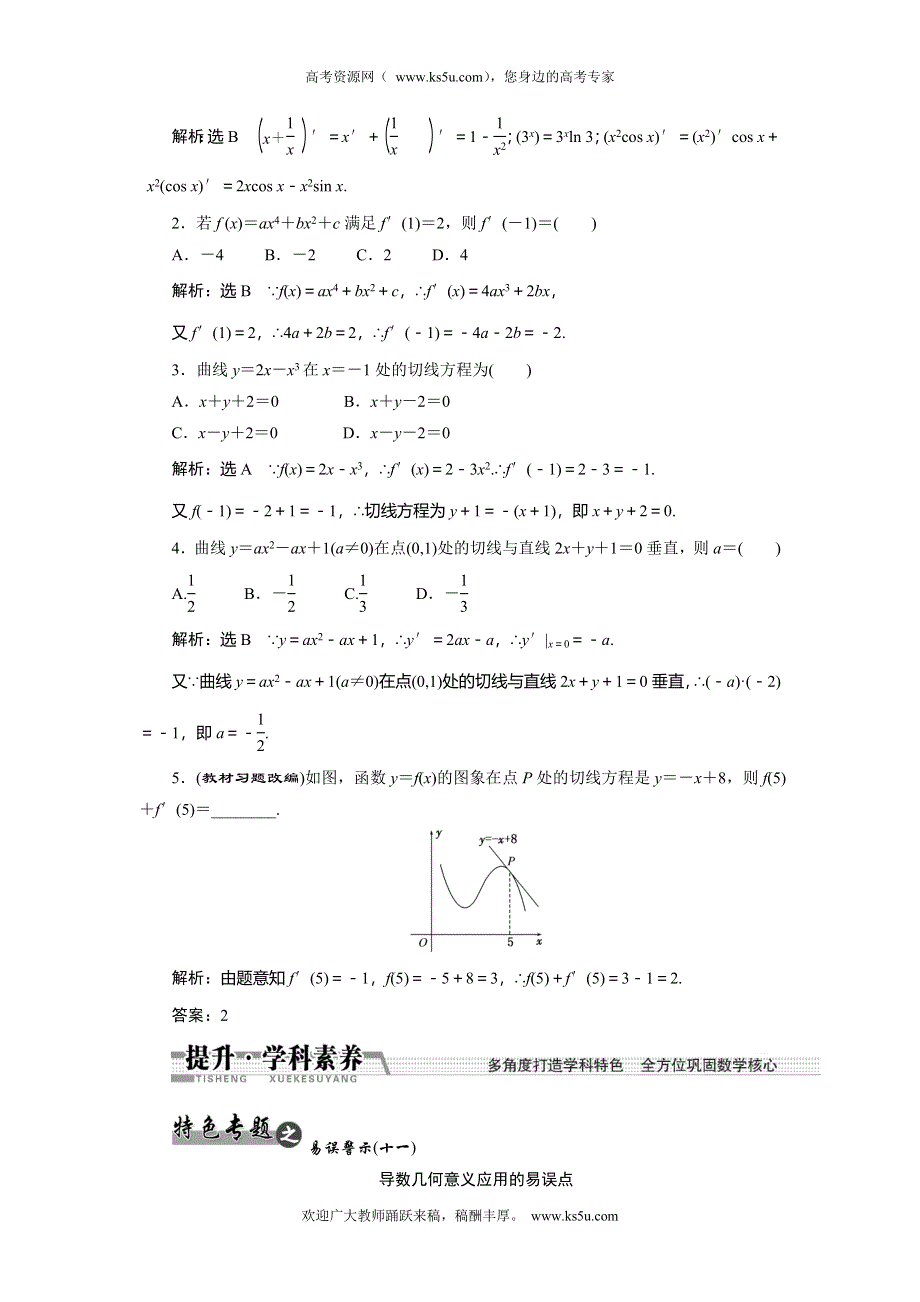 高考资源网（ www.ks5u.com），您身边的高考专家
解析：选B　(x＋1/x)′＝x′＋(1/x)′＝1－1/x²；(3ˣ)＝3ˣln 3；(x²cos x)′＝(x²)′cos x＋
x²(cos x)′＝2xcos x－x²sin x.
2．若 f (x)＝ax⁴＋bx²＋c 满足 f′(1)＝2，则 f′(－1)＝(　　)
A．－4　　B．－2　　C．2　　D．4
解析：选 B　∵f(x)＝ax⁴＋bx²＋c，∴f′(x)＝4ax³＋2bx，
又 f′(1)＝2，∴4a＋2b＝2，∴f′(－1)＝－4a－2b＝－2.
3．曲线 y＝2x－x³ 在 x＝－1 处的切线方程为(　　)
A．x＋y＋2＝0　　B．x＋y－2＝0
C．x－y＋2＝0　　D．x－y－2＝0
解析：选 A　∵f(x)＝2x－x³，∴f′(x)＝2－3x².∴f′(－1)＝2－3＝－1.
又 f(－1)＝－2＋1＝－1，∴切线方程为 y＋1＝－(x＋1)，即 x＋y＋2＝0.
4．曲线 y＝ax²－ax＋1(a≠0)在点(0,1)处的切线与直线 2x＋y＋1＝0 垂直，则 a＝(　　)
A.1/2　　B．－1/2　　C.1/3　　D．－1/3
解析：选 B　∵y＝ax²－ax＋1，∴y′＝2ax－a，∴y′|ₓ₌₀＝－a.
又∵曲线 y＝ax²－ax＋1(a≠0)在点(0,1)处的切线与直线 2x＋y＋1＝0 垂直，∴(－a)·(－2)
＝－1，即 a＝－1/2.
5．(教材习题改编)如图，函数 y＝f(x)的图象在点 P 处的切线方程是 y＝－x＋8，则 f(5)
＋f′(5)＝________.
y
y=-x+8
P
O
5
x
解析：由题意知 f′(5)＝－1，f(5)＝－5＋8＝3，∴f(5)＋f′(5)＝3－1＝2.
答案：2
提升·学科素养
TISHENG XUEKESUYANG
多角度打造学科特色　全方位巩固数学核心
特色专题之
易误警示(十一)
导数几何意义应用的易误点
欢迎广大教师踊跃来稿，稿酬丰厚。 www.ks5u.com